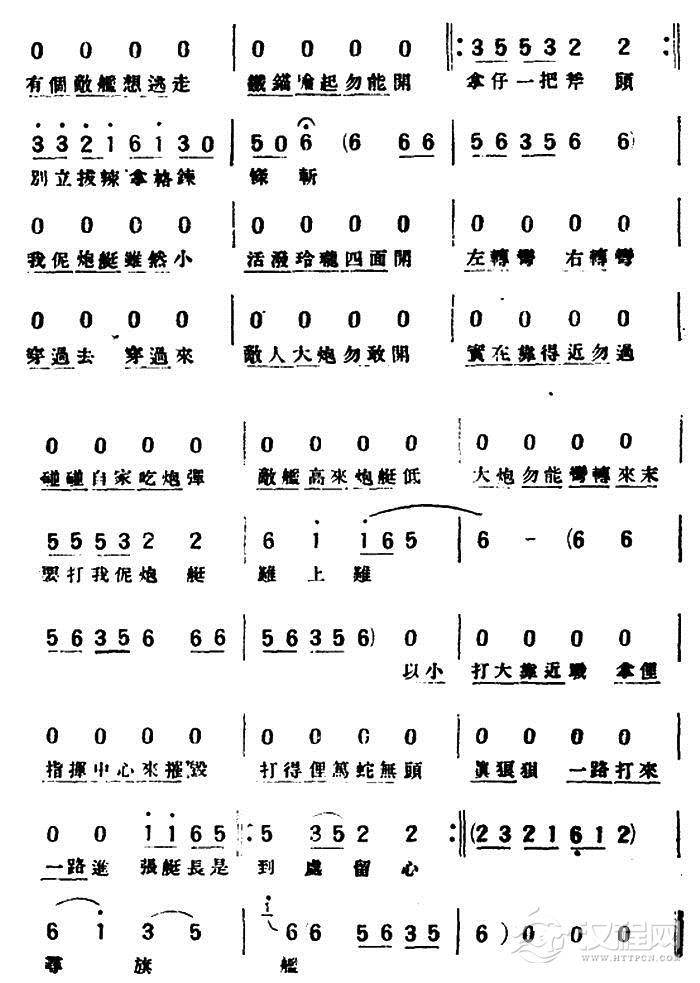 0 0 0 0 | 0 0 0 0 ‖: 3 5 5 3 2 2 :‖
有個敵艦想逃走 鐵錨 起勿能開 拿仔一把斧頭
3 3 2 1 6 1 3 0 | 5 0 6 (6 6 6 | 5 6 3 5 6 6)
別立拔辣拿格鍊 條斬
0 0 0 0 | 0 0 0 0 | 0 0 0 0
我伲炮艇雖然小 活潑玲瓏四面開 左轉彎 右轉彎
0 0 0 0 | 0 0 0 0 | 0 0 0 0
穿過去 穿過來 敵人大炮勿敢開 實在 得近勿過
0 0 0 0 | 0 0 0 0 | 0 0 0 0
碰碰自家吃炮彈 敵艦高來炮艇低 大炮勿能彎轉來末
5 5 5 3 2 2 | 6 1 1 6 5 | 6 - (6 6
要打我伲炮艇 難上難
5 6 3 5 6 6 6 | 5 6 3 5 6) 0 | 0 0 0 0
以小 打大靠近戰 拿俚
0 0 0 0 | 0 0 0 0 | 0 0 0 0
指揮中心來摧毀 打得俚篤蛇無頭 真狼狽 一路打來
0 0 1 1 6 5 ‖: 5 3 5 2 2 :‖ (2 3 2 1 6 1 2)
一路進 張艇長是 到處留心
6 1 3 5 | i 6 6 5 6 3 5 | 6 ) 0 0 0
尋 旗 艦
汉程网
HTTPCN.COM